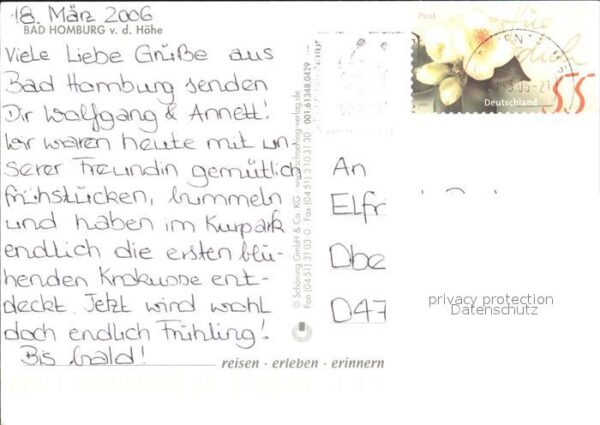 18. März 2006
BAD HOMBURG v. d. Höhe
Viele Liebe Grüße aus
Bad Homburg senden
Dir Wolfgang & Annett!
Wir waren heute mit un-
serer Freundin gemütlich
frühstücken, bummeln
und haben im Kurpark
endlich die ersten blü-
henden Krokusse ent-
deckt. Jetzt wird wohl
doch endlich Frühling!
Bis bald!
reisen · erleben · erinnern
© Schöning GmbH & Co. KG · www.schoening-verlag.de
Fon (04 51) 31 03-0 · Fax (04 51) 3 10 31 30 001.61348.0429
Post
für
dich
Deutschland
55
An
Elfr
Obe
D47
privacy protection
Datenschutz